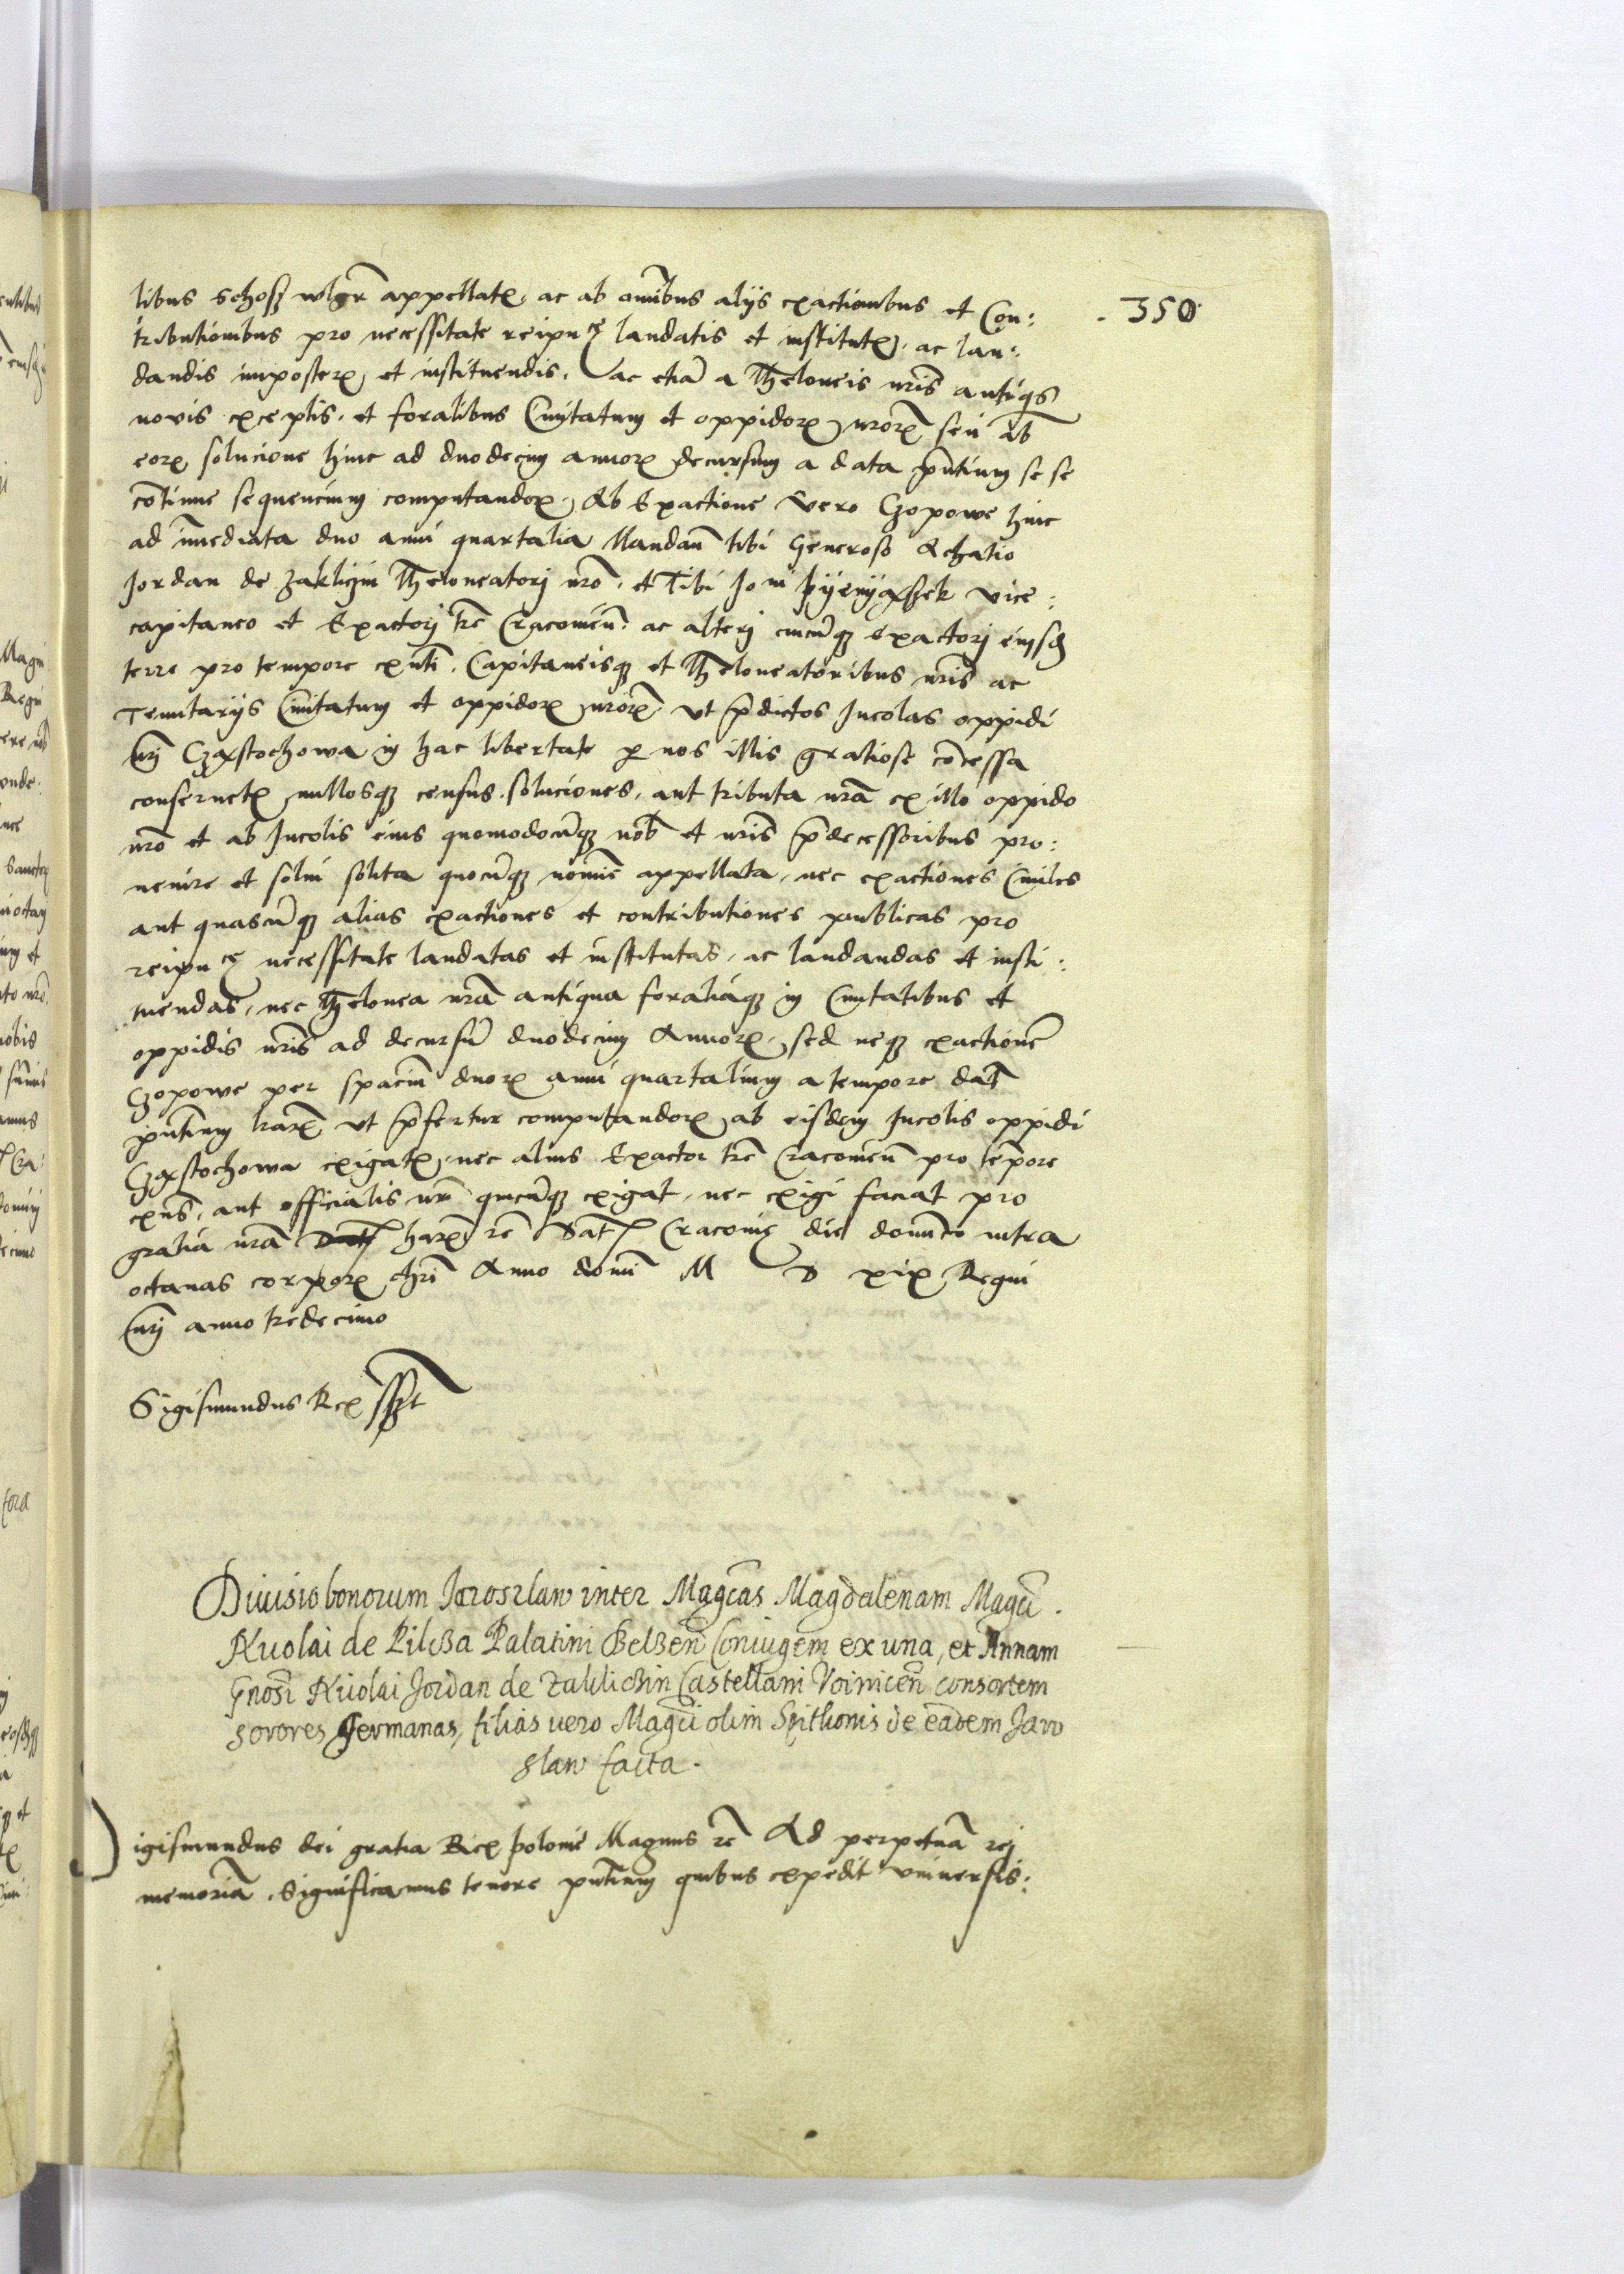 350
libus schosz wlgr̃ appellatꝭ, ac ab om̃ibus alijs exactionibus et Con:
tributionibus pro necessitate reipuce laudatis et institutꝭ, ac lau:
dandis imposterꝭ et instituendis, ac etiã a Theloneis nr̃is antiq̃s
novis exceptis, et foralibus Civitatum et oppidorꝭ nrorꝭ seu ab
eorꝭ solucione hinc ad duodecim annorꝭ decursum a data pn̄tium se se
cõtinue sequencium computandorꝭ, Ab Exactione vero Czopowe hinc
ad ĩmediata duo anni quartalia Mandam̃ tibi Generoso Achatio
Jordan de Zakliczin Theloneatorj nr̃o, et Tibi Jo ni Pyenyązek vice:
capitaneo et Exactorj tr̃e Cracovien̄: ac alterj cuicũqꝫ exactorj eiusd̃
terre pro tempore exn̄ti, Capitaneisqꝫ et Theloneatoribus nr̃is ac
Tenutarijs Civitatum et oppidorꝭ nrorꝭ, Vt p̃dictos Incolas oppidi
nr̃j Cząstochowa in hac libertate ꝑ nos illis gratiose cõcessa
conseruetꝭ nullosqꝫ census, soluciones, aut tributa nr̃a ex illo oppido
nr̃o et ab Incolis eius quomodocũqꝫ nob̃ et nr̃is p̃decessoribus pro:
uenire et solui solita quocũqꝫ nomĩe appellata, nec exactiones Ciuiles
aut quascũqꝫ alias exactiones et contributiones publicas pro
reipuce necessitate laudatas et institutas, ac laudandas et insti:
tuendas, nec Thelonea nr̃a antiqua foraliaqꝫ in Ciuitatibus et
oppidis nr̃is ad decursũ duodecim Annorꝭ, sed neqꝫ exactionẽ
Czopowe per spaciũ duorꝭ anni quartalium a tempore dat̃
pn̄tium harꝭ, vt p̃fertur computandorꝭ ab eisdem Incolis oppidi
Cząstochowa exigatꝭ, nec alius Exactor tr̃e Cracovien̄ pro tẽpore
exn̄s, aut officialis nr̃ quicũqꝫ exigat, nec exigi faciat pro
gratia nr̃a Datꝭ harꝭ rẽ Datꝭ Cracovie die dominico intra
octauas corporꝭ chr̃i Anno domĩ M D xix Regni
nr̃j anno tredecimo
Sigismundus Rex sszt
Diuisio bonorum Jaroslaw inter Magc̃as Magdalenam Magc̃i
Nicolai de Pilcza Palatini Belzen̄ Coniugem ex una, et Annam
Gnosi Nicolai Jordan de Zakliczin Castellani Voinicen̄ consortem
sorores germanas, filias vero Magc̃i olim Spithonis de eadem Jaro
slaw facta.
igismundus dei gratia Rex Polonie Magnus rẽ Ad perpetuã rej
memoriã. Significamus tenore pn̄tium quibus expedit vniuersis: